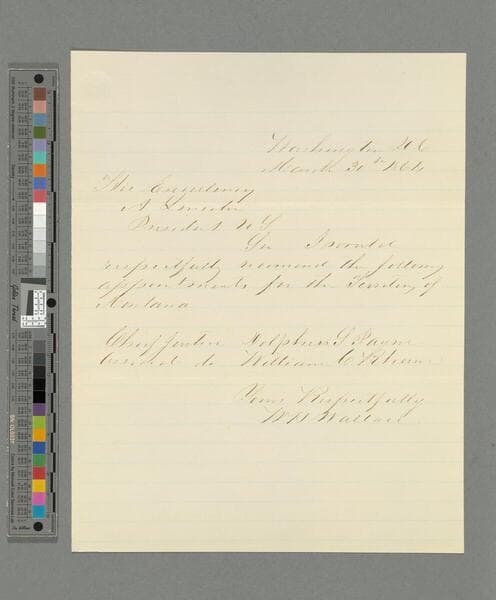 Washington D C
March 30th 1864
His Excellency
A Lincoln
President U S
Sir I would
respectfully recomend the following
appointments for the Territory of
Montana
Chief Justice Dolphus S Payne
Associate do William C
Yours Respectfully
W H Wallace